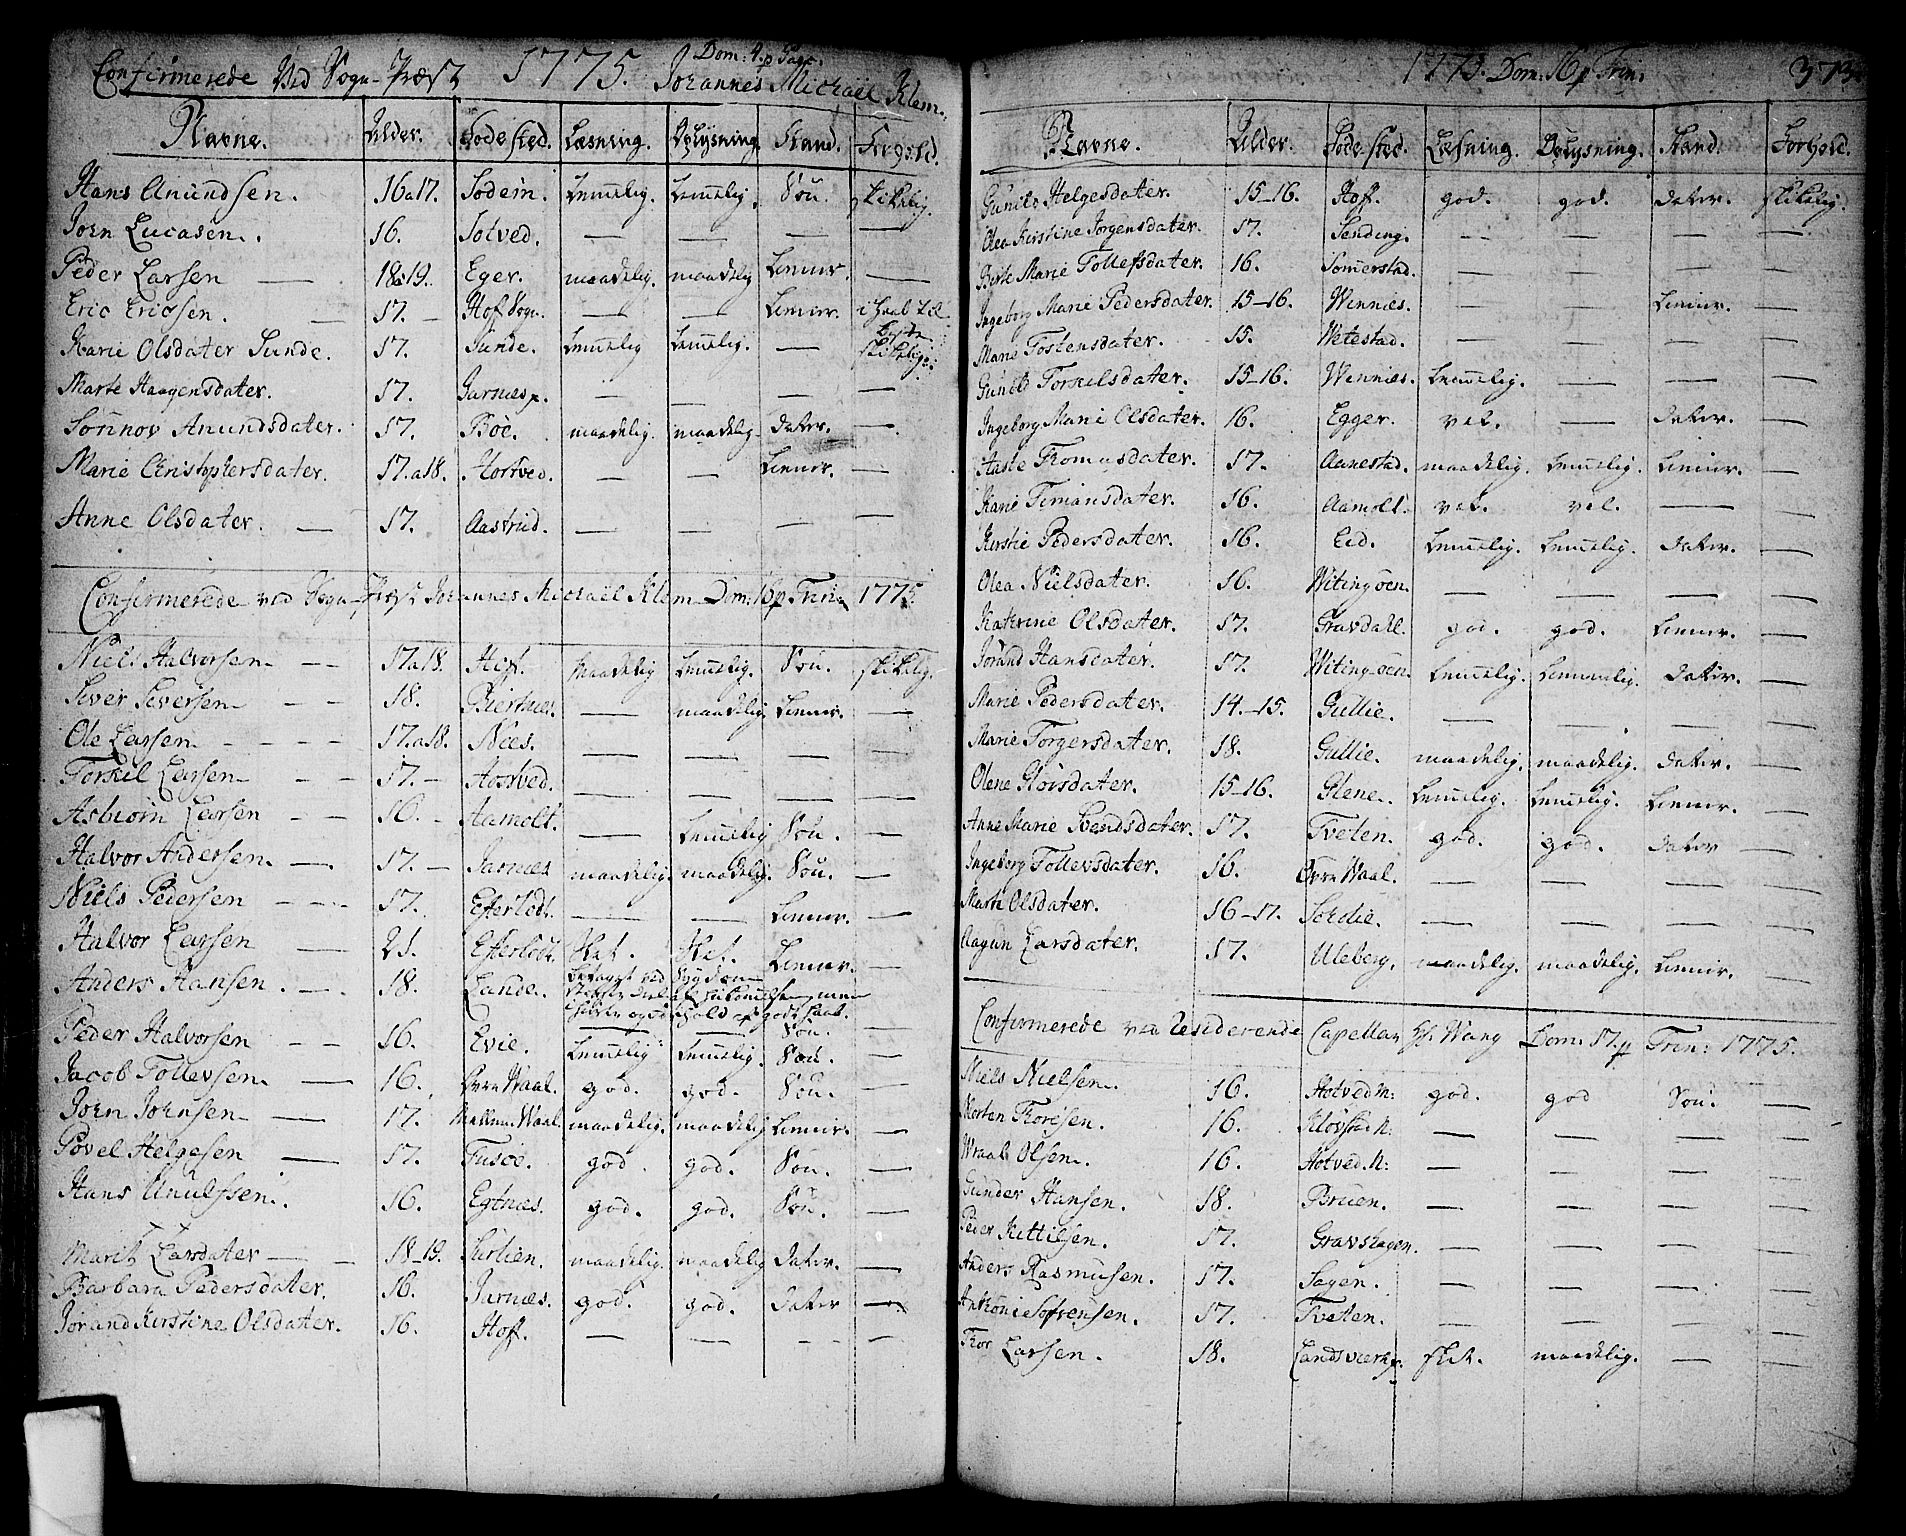 Confirmerede Ved Sogne-Præst 1775. Dom: 4. p Pasc: Johannes Michaël Klem.
Navne. Alder. Fødested. Læsning. Oplysning. Stand. Forhold.
Hans Anundsen. 16 a 17. Sodem. Lemelig. Lemelig. Søn. skikelig.
Joen Lucasen. 16. Totved. — — — —
Peder Larsen — 18 a 19. Eger. maadelig. maadelig —
Eric Ericsen. — 17. — Hof Sogn. — —
Karie Olsdater Sunde. 17. Sunde. Lemelig Lemelig. — skikelig.
Marte Haagensdater. 17. Jarnes — — — —
Sønnov Anundsdater. 17. Böe. maadelig. maadelig. dater. —
Marie Christophersdater. 17. a 18. Hottved. — — —
Anne Olsdater. — 17. Aastrud. — — — —
Confirmerede ved Sogne-Præst Johannes Michaël Klem Dom: 16 p Trin. 1775.
Niels Halvorsen — — 17 a 18. Hoff. Maadelig Lemelig. Søn. skikelig.
Siver Siversen — — 18. Biernes. — maadelig. —
Ole Larsen — — — — 17. a 18. Nies. — — — —
Torkil Larsen — — — 17. — Hostved. — — — —
Asbiorn Larsen — — 16. — Aamolt. — Lemelig Søn. —
Halvor Andersen. — 17. — Jarnæs maadelig. maadelig. Søn. —
Niels Pedersen — — — 17. Efterlodt. — — —
Halvor Larsen — 21. Efterlodt. slet. slet. —
Anders Hansen. — . 18. Lande.
Peder Halvorsen — — 16. Evie. Lemelig Lemelig. Søn. —
Jacob Tollevsen. — 16. Øvre Waal. god. god. Søn. —
Joen Joensen — — 17. Mellem Waal. maadelig. maadelig —
Povel Helgesen — 17. Fusöe. god. god. Søn. —
Hans Unulfsen. 16. Egtnæs. god. god. Søn. —
Marit Larsdater — — 18-19. Surlien. maadelig. maadelig dater. —
Barbara Pedersdater. 16. Jarnæs. god. god. dater —
Jørand Kirstine Olsdater. 16. Hoff. — — — —
1775. Dom: 16 p Trin: 373.
Navne. Alder. Fødested. Læsning. Oplysning. Stand. Forhold.
Gunild Helgesdater. 15-16. Hof. god. god. dater. skikelig.
Olea Kirstine Jørgensdater. 17. Sending. — — — —
Berte Marie Tollefsdater. 16. Somerstad. — — — —
Ingeborg Marie Pedersdater. 15-16. Wennies. — — —
Marie Tostensdater. 15. Wetestad. — — — —
Gunild Torkilsdater. 15-16. Wennies. Lemelig. — — —
Ingeborg Marie Olsdater. 16. Egger. vel. — dater. —
Aaste Thomasdater. 17. Aanestad. maadelig. Lemelig. —
Karie Timansdater. 16. Aamolt. vel. vel. — —
Kirstie Pedersdater. 16. Eid. Lemelig. Lemelig. dater. —
Olea Nielsdater. 16. Witingöen. — — — —
Kathrine Olsdater. 17. Gravdahl. god. god. —
Jørand Hansdater. 17. Witingöen. Lemelig. Lemmelig. dater. —
Marie Pedersdater. 14.-15. Gullie. — — — —
Marie Torgersdater. 18. Gullie. maadelig. maadelig. dater. —
Olene Gloisdater. 15-16. Glene. Lemelig. Lemelig. —
Anne Marie Svendsdater. 17. Tveten. god. god. dater —
Ingeborg Tollevsdater. 16. Øvre Waal. — — — —
Marte Olsdater. 16-17. Sordie. — — — —
Aagun Larsdater. 17. Uleberg. maadelig. maadelig. —
Confirmerede ved Residerende Capellan Hr. Wang Dom: 17. p Trin: 1775.
Niels Nielsen. 16. Hotved N: god. god Søn. —
Morten Thoresen. 16. Klovstad N: — — — —
Wraal Olsen. 16. Hotved. N: — — — —
Gunder Hansen. 18. Bruen. — — — —
Peder Kittilsen. 17. Gravshagen. — — — —
Anders Rasmusen. 17. Sagen. — — — —
Anthoni Sofrensen. 17. Tveten. — — — —
Thor Larsen. 18. Landsværk slet. maadelig. — —